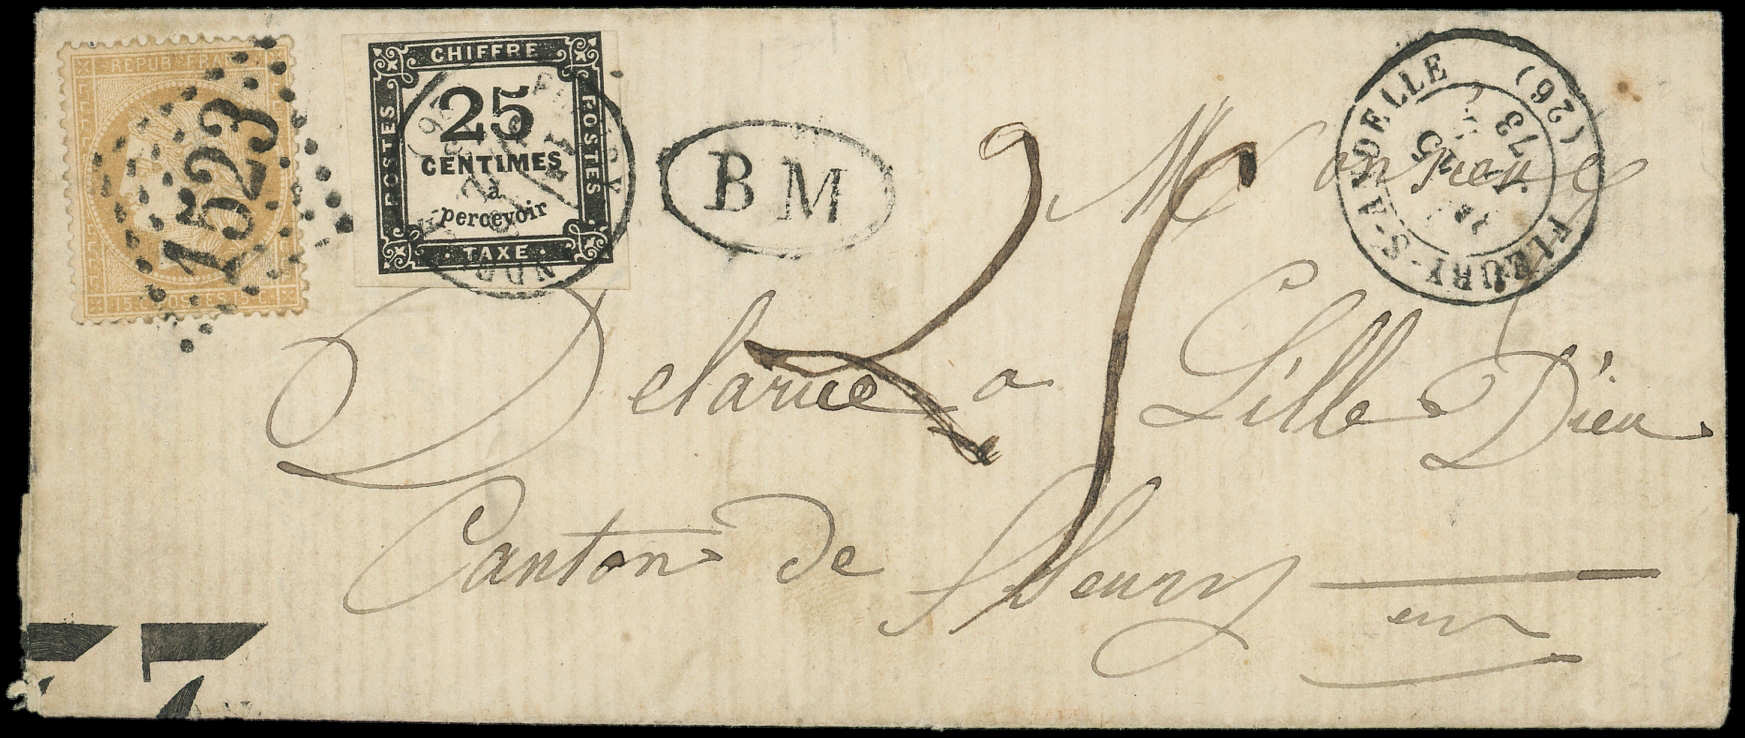 REPUB FRA
15 c. POSTES 15 c.
1523
CHIFFRE
POSTES
25
CENTIMES
à
percevoir
POSTES
TAXE
BM
25
FLEURY-S-ANDELLE (26)
25
73
Monsieur
Delarue a Lille Dieu
Canton de fleury
eur